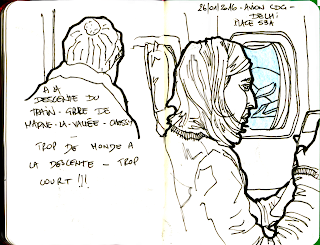 A LA
DESCENTE DU
TRAIN - GARE DE
MARNE-LA-VALLÉE-CHESSY
-
TROP DE MONDE A
LA DESCENTE - TROP
COURT !!!
26/01/2016 - AVION CDG -
DELHI
PLACE 53A